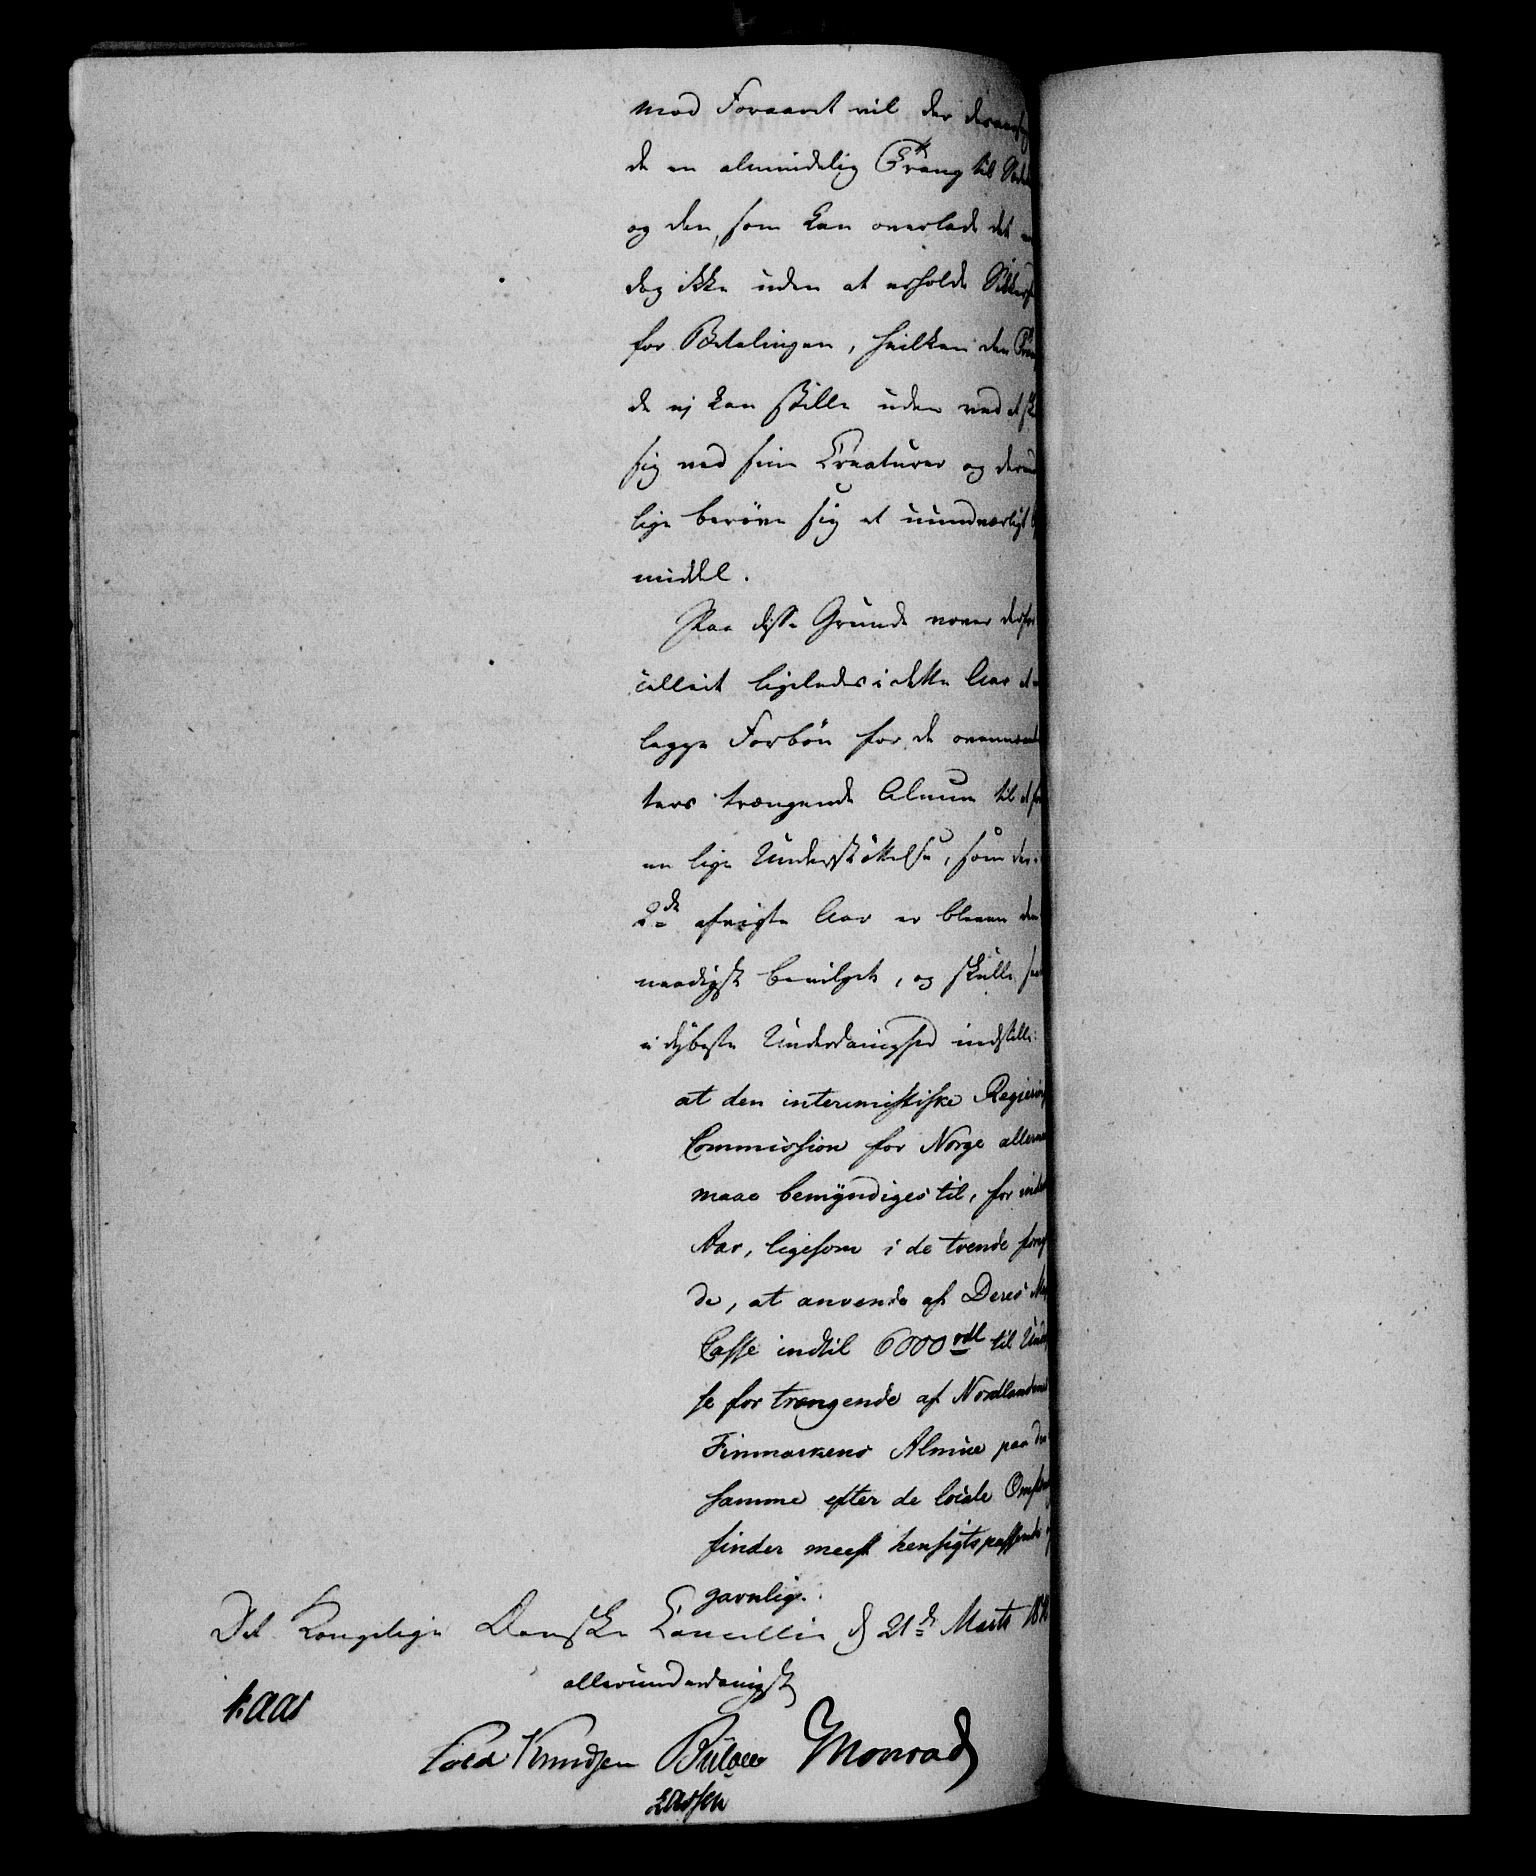 mod Foraaret vil der
de en almindelig Trang til
og den, som kan overlade det
dog ikke uden at erholde Sikkerhe
for Betalingen, hvilken den Træng
de ej kan stille uden ved at
sig ved sine Creaturer og derved
lige berøve sig et uundværligt
middel.
Paa disse Grunde vover
celliet ligeledes i dette Aar at
lægge Forbøn for de ovennævnte
ters trængende Almue til at
en lige Understøttelse, som der i
2de afvigte Aar er bleven dem
naadigst bevilget, og skulle
i dybeste Underdanighed indstille:
at den interimistiske Regierings
Commission for Norge allernaa
maae bemyndiges til, for inde
Aar, ligesom i de tvende foreg
de, at anvende af Deres Maj
Casse indtil 6000 rdl til Unde
se for trængende af Nordlandene
Finmarkens Almue paa den
samme efter de locale Omstæn
finder meest hensigtspassende
gavnlig.
Det Kongelige Danske Cancellie d 21de Marts 18
allerunderdanigst
Kaas
Cold Knudsen Bülow Monrad
Lassen